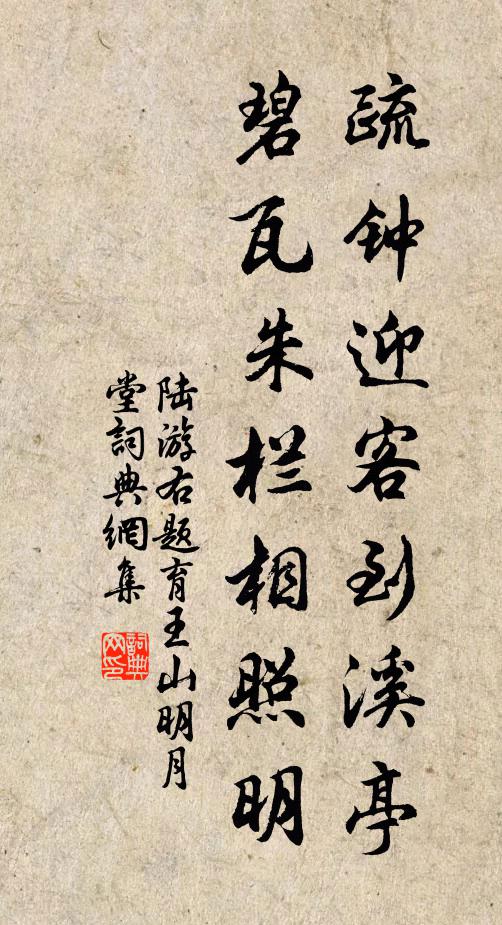 疏钟迎客到溪亭
碧瓦朱栏相照明
陆游右题育王山明月
堂詞典網集
詞典
网印